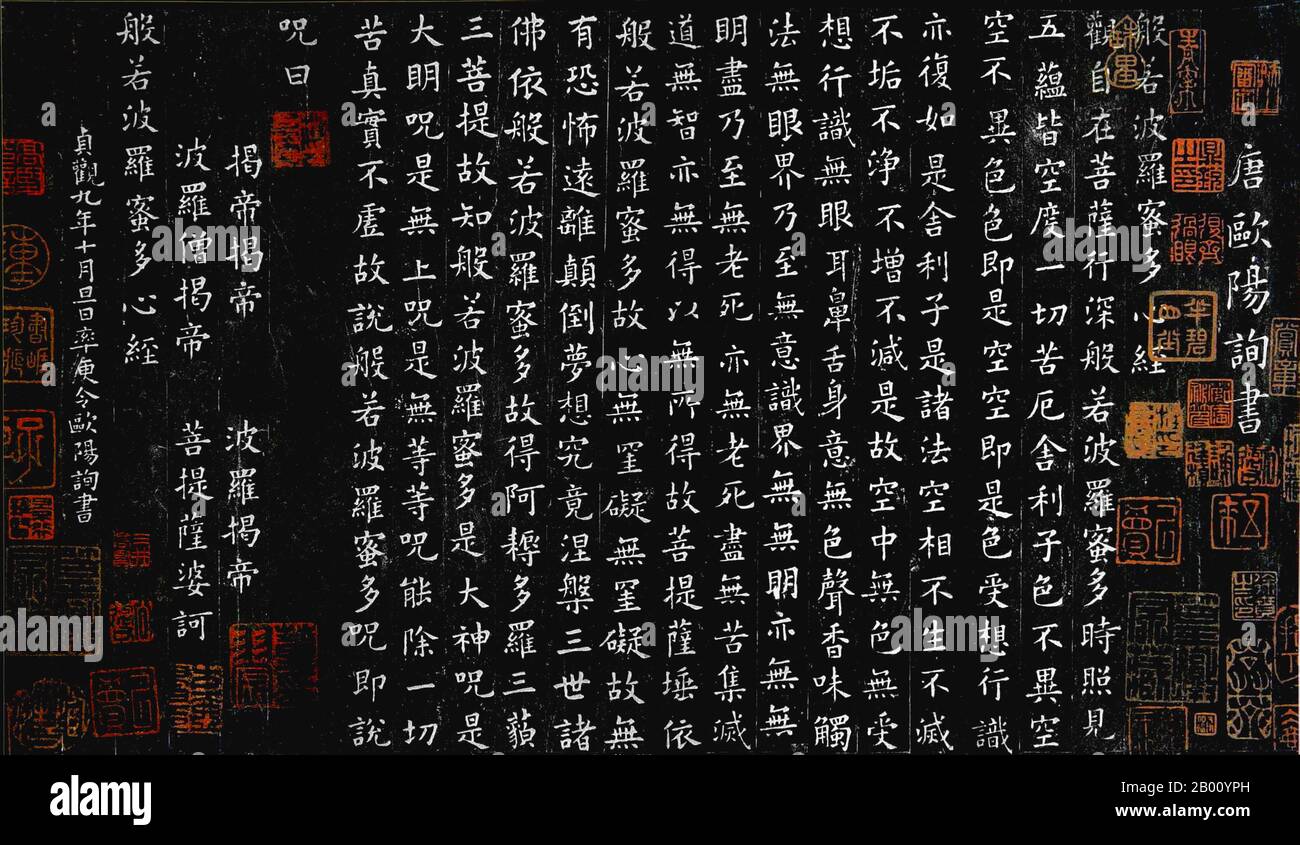 唐歐陽詢書
般若波羅蜜多心經
觀自在菩薩行深般若波羅蜜多時照見
五蘊皆空度一切苦厄舍利子色不異空
空不異色色即是空空即是色受想行識
亦復如是舍利子是諸法空相不生不滅
不垢不淨不增不減是故空中無色無受
想行識無眼耳鼻舌身意無色聲香味觸
法無眼界乃至無意識界無無明亦無無
明盡乃至無老死亦無老死盡無苦集滅
道無智亦無得以無所得故菩提薩埵依
般若波羅蜜多故心無罣礙無罣礙故無
有恐怖遠離顛倒夢想究竟涅槃三世諸
佛依般若波羅蜜多故得阿耨多羅三藐
三菩提故知般若波羅蜜多是大神咒是
大明咒是無上咒是無等等咒能除一切
苦真實不虛故說般若波羅蜜多咒即說
咒曰
揭帝揭帝 波羅揭帝
波羅僧揭帝 菩提薩婆訶
般若波羅蜜多心經
貞觀九年十月旦日率更令歐陽詢書
alamy
Image ID: 2B00YPH
www.alamy.com